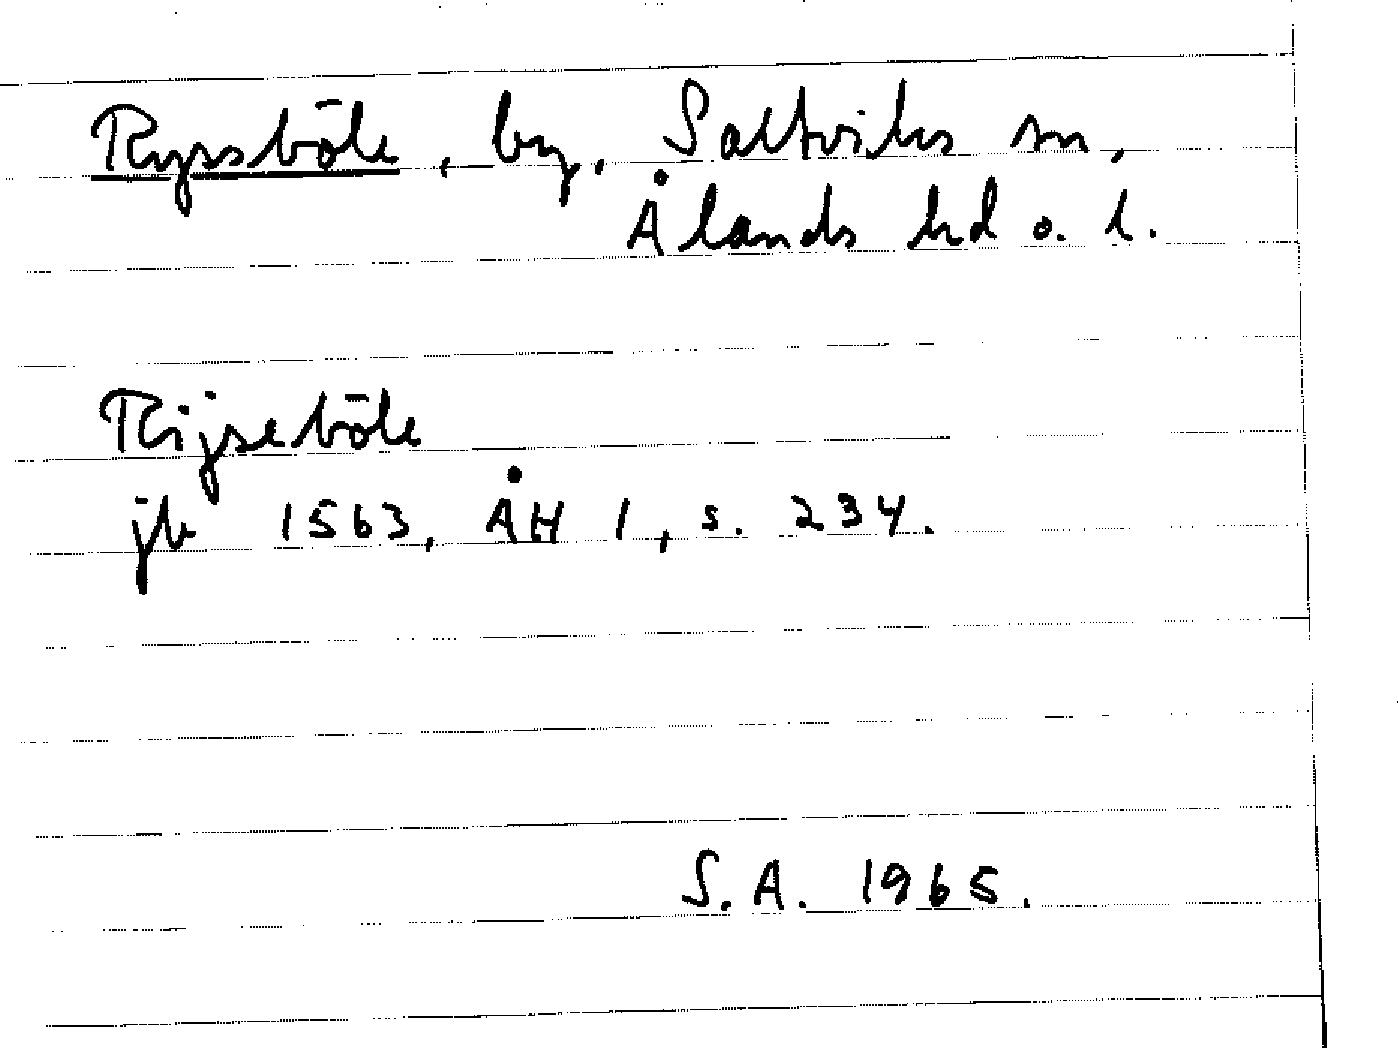 Ryssböle, by, Saltviks sn,
Ålands hd o. l.
Rijseböle
jb 1563, ÅH 1, s. 234.
S.A. 1965.